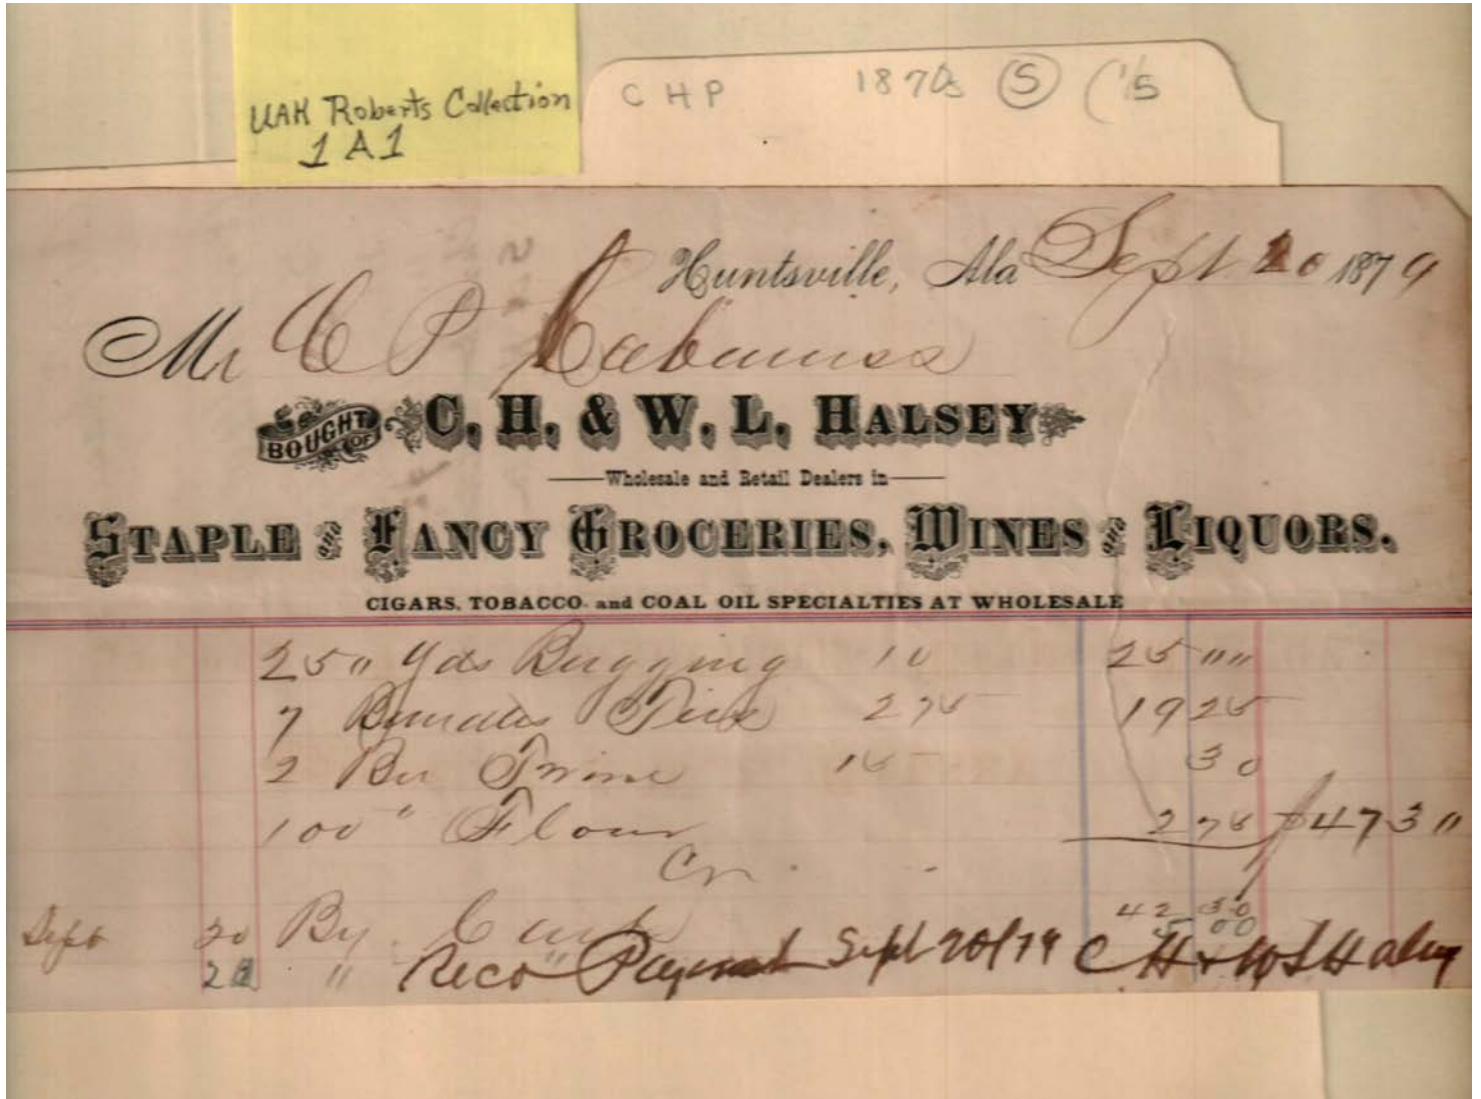 UAH Roberts Collection
1 A 1
C H P 1870s S (15
Huntsville, Ala Sept. 20 1879
Mr C P Cabaniss
BOUGHT OF C. H. & W. L. HALSEY
Wholesale and Retail Dealers in
STAPLE and FANCY GROCERIES, WINES and LIQUORS.
CIGARS, TOBACCO and COAL OIL SPECIALTIES AT WHOLESALE
25 " Yds Bagging 10 25 " "
7 Bundles Ties 275 19 25
2 Twine 15 30
100 " Flour 2 75 $47 3 "
Cr.
Sept 20 By Cash 42 30
" 5 00
Recd Payment Sept 20/79 C H & W L Halsey